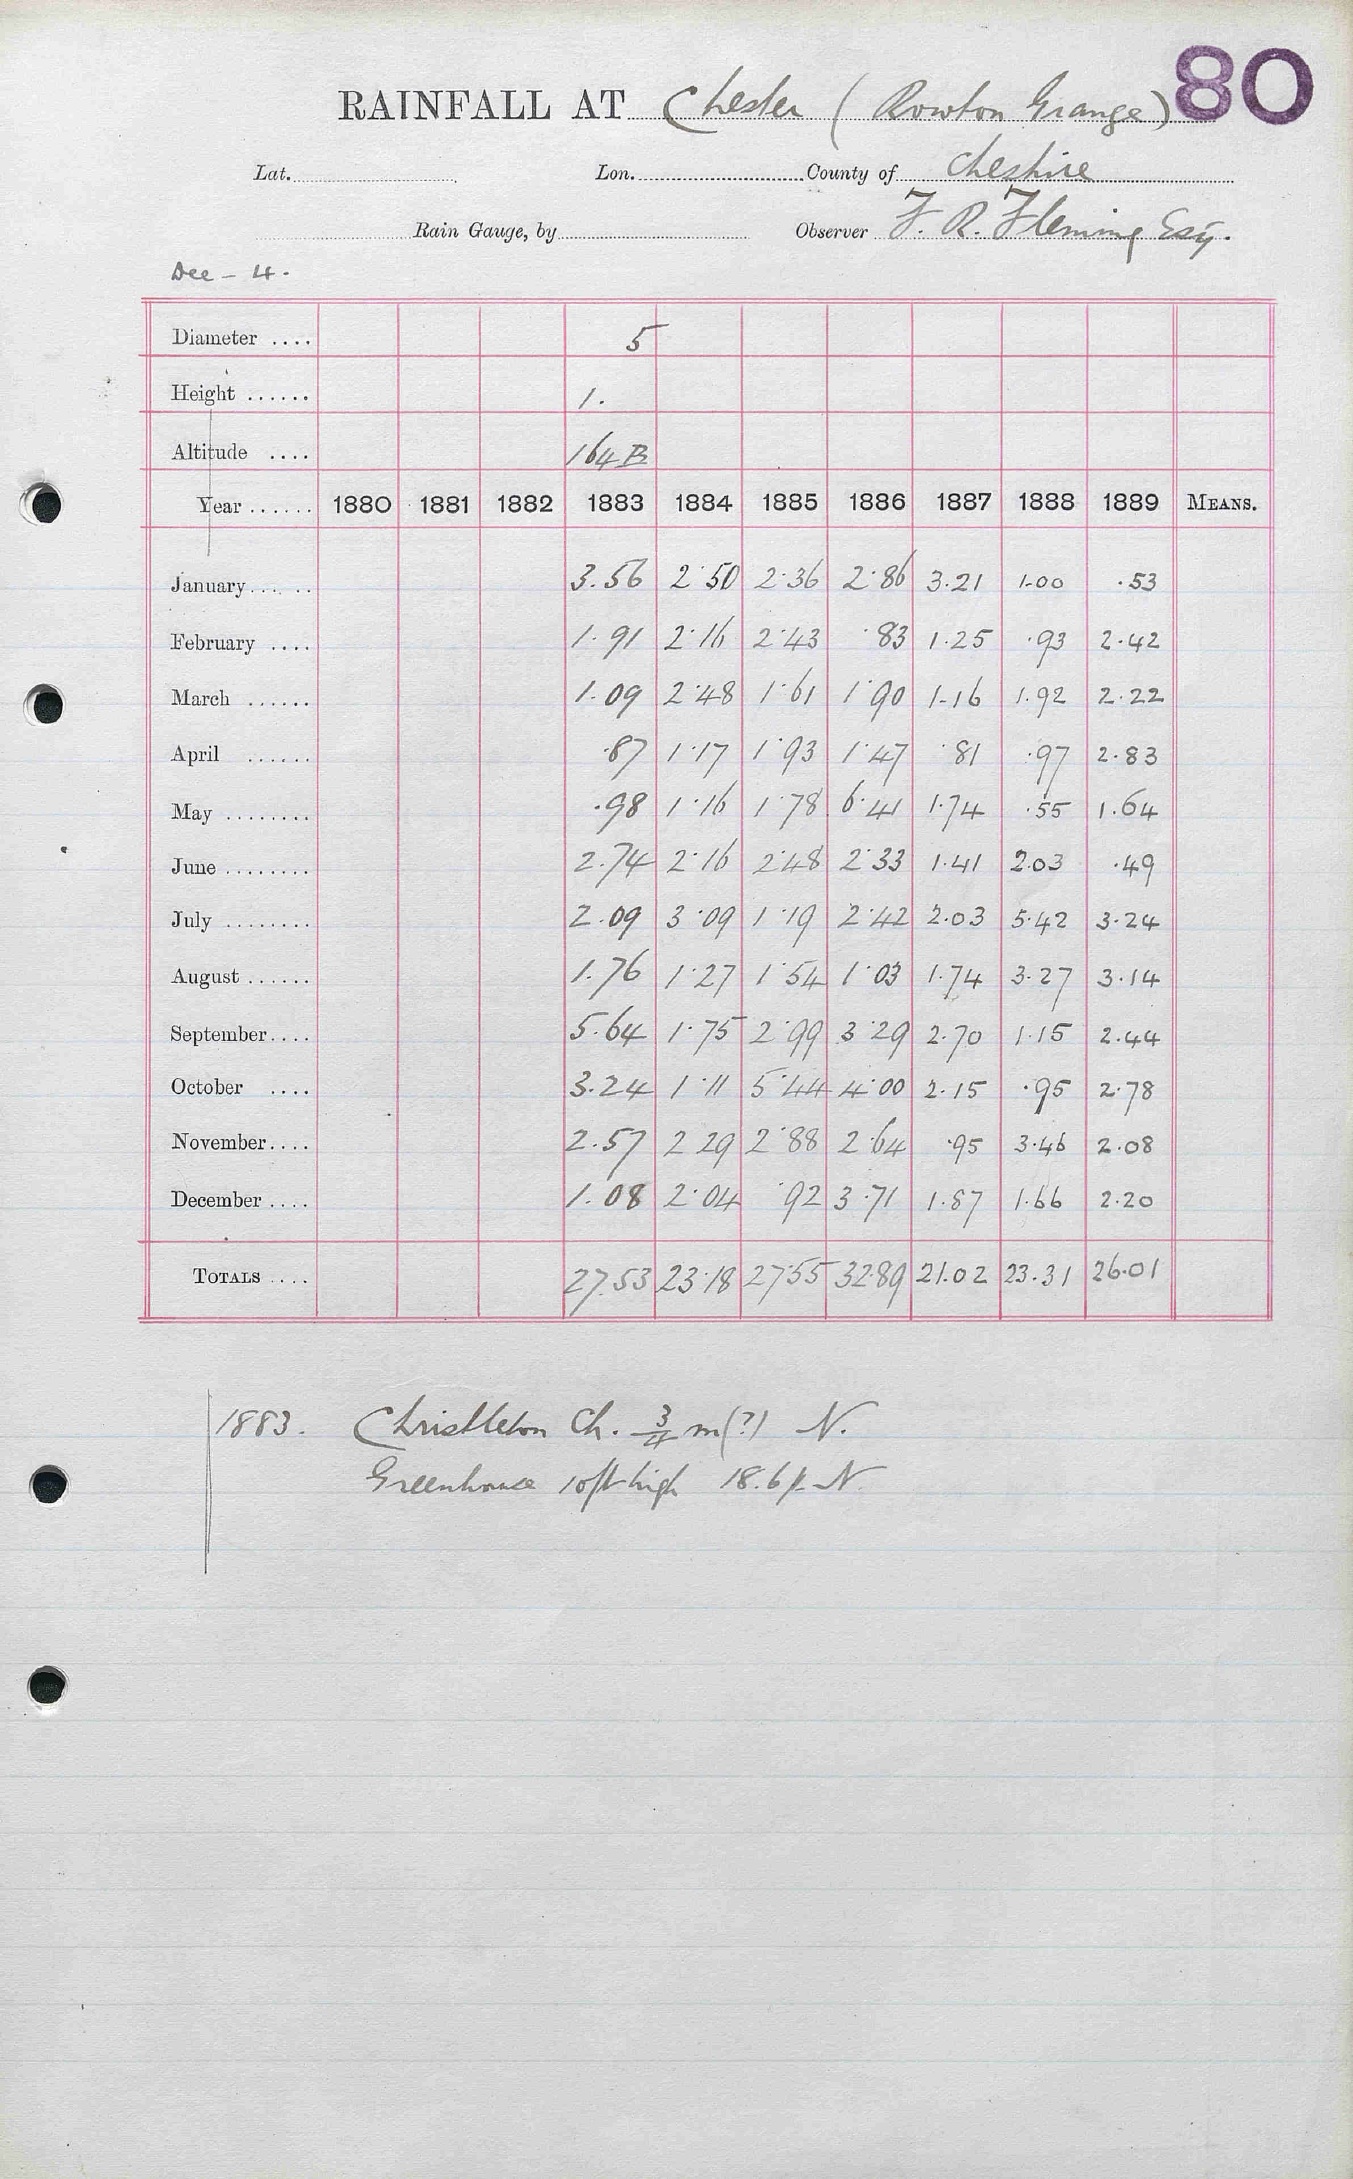 80
RAINFALL AT Chester (Rowton Grange)
Lat. Lon. County of Cheshire
Rain Gauge, by Observer F. R. Fleming Esq.
Dee - 4.
Diameter .... 5
Height ...... 1.
Altitude .... 164 B
Year ...... 1880 1881 1882 1883 1884 1885 1886 1887 1888 1889 MEANS.
January...... 3.56 2.50 2.36 2.86 3.21 1.00 .53
February .... 1.91 2.16 2.43 .83 1.25 .93 2.42
March ...... 1.09 2.48 1.61 1.90 1.16 1.92 2.22
April ...... .87 1.17 1.93 1.47 .81 .97 2.83
May ........ .98 1.16 1.78 6.41 1.74 .55 1.64
June ........ 2.74 2.16 2.48 2.33 1.41 2.03 .49
July ........ 2.09 3.09 1.19 2.42 2.03 5.42 3.24
August ...... 1.76 1.27 1.54 1.03 1.74 3.27 3.14
September.... 5.64 1.75 2.99 3.29 2.70 1.15 2.44
October .... 3.24 1.11 5.44 4.00 2.15 .95 2.78
November.... 2.57 2 29 2.88 2.64 .95 3.46 2.08
December .... 1.08 2.04 .92 3.71 1.87 1.66 2.20
TOTALS .... 27.53 23.18 27.55 32.89 21.02 23.31 26.01
1883. Christleton Ch. 3/4 m(?) N.
Greenhouse 10ft high 18.6 ft N.